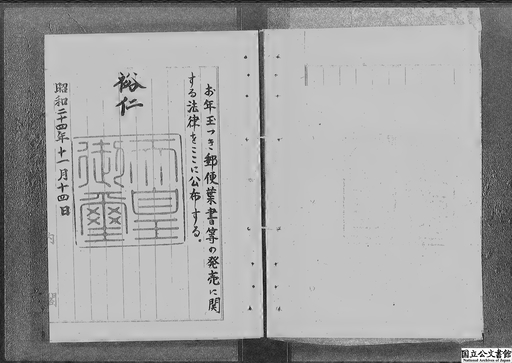 お年玉つき郵便葉書等の発売に関
する法律をここに公布する。
裕仁
天皇
御璽
昭和二十四年十一月十四日
内
閣
国立公文書館
National Archives of Japan